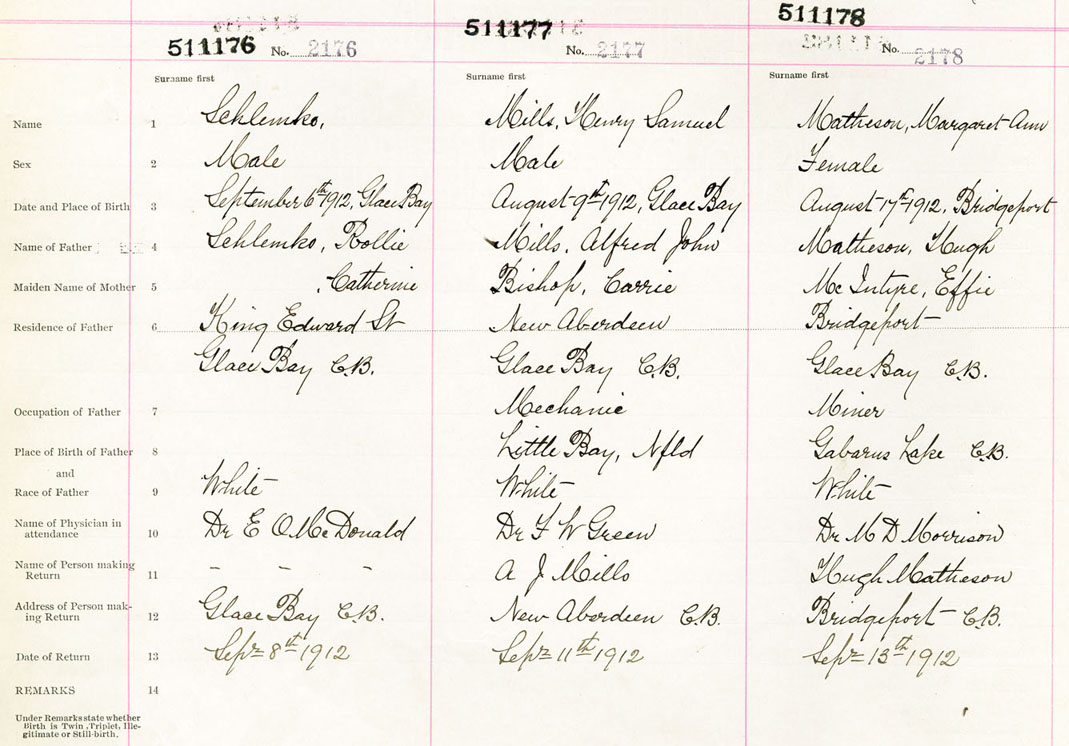 511176 No. 2176
511177 No. 2177
511178 No. 2178
Surname first Surname first Surname first
Name 1 Schlemko, Mills, Henry Samuel Matheson, Margaret Ann
Sex 2 Male Male Female
Date and Place of Birth 3 September 6th 1912, Glace Bay August 9th 1912, Glace Bay August 17th 1912, Bridgeport
Name of Father 4 Schlemko, Rollie Mills, Alfred John Matheson, Hugh
Maiden Name of Mother 5 , Catherine Bishop, Carrie Mc Intyre, Effie
Residence of Father 6 King Edward St New Aberdeen Bridgeport
Glace Bay C.B. Glace Bay C.B. Glace Bay C.B.
Occupation of Father 7 Mechanic Miner
Place of Birth of Father 8 Little Bay, Nfld Gabarus Lake C.B.
and
Race of Father 9 White White White
Name of Physician in
attendance 10 Dr E O McDonald Dr F W Green Dr M D Morrison
Name of Person making
Return 11 - - - A J Mills Hugh Matheson
Address of Person mak-
ing Return 12 Glace Bay C.B. New Aberdeen C.B. Bridgeport C.B.
Date of Return 13 Sept 8th 1912 Sept 11th 1912 Sept 13th 1912
REMARKS 14
Under Remarks state whether
Birth is Twin, Triplet, Ille-
gitimate or Still-birth.